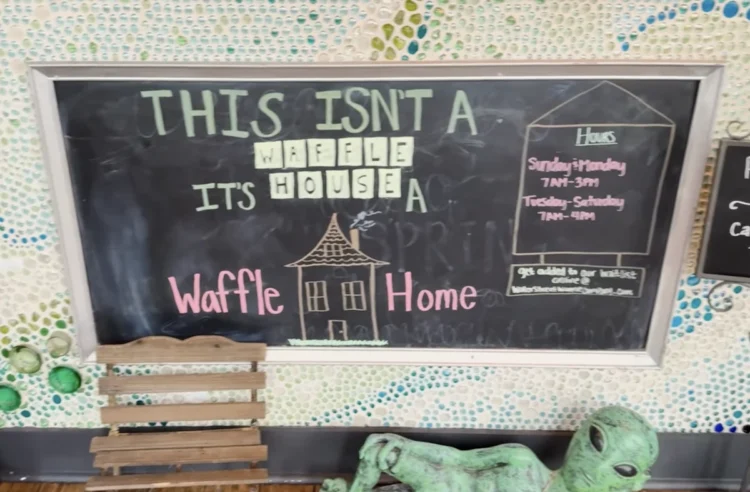 THIS ISN'T A
WAFFLE
HOUSE
IT'S A
Waffle Home
Hours
Sunday & Monday
7AM-3PM
Tuesday-Saturday
7AM-4PM
get added to our waitlist
online @
Ca